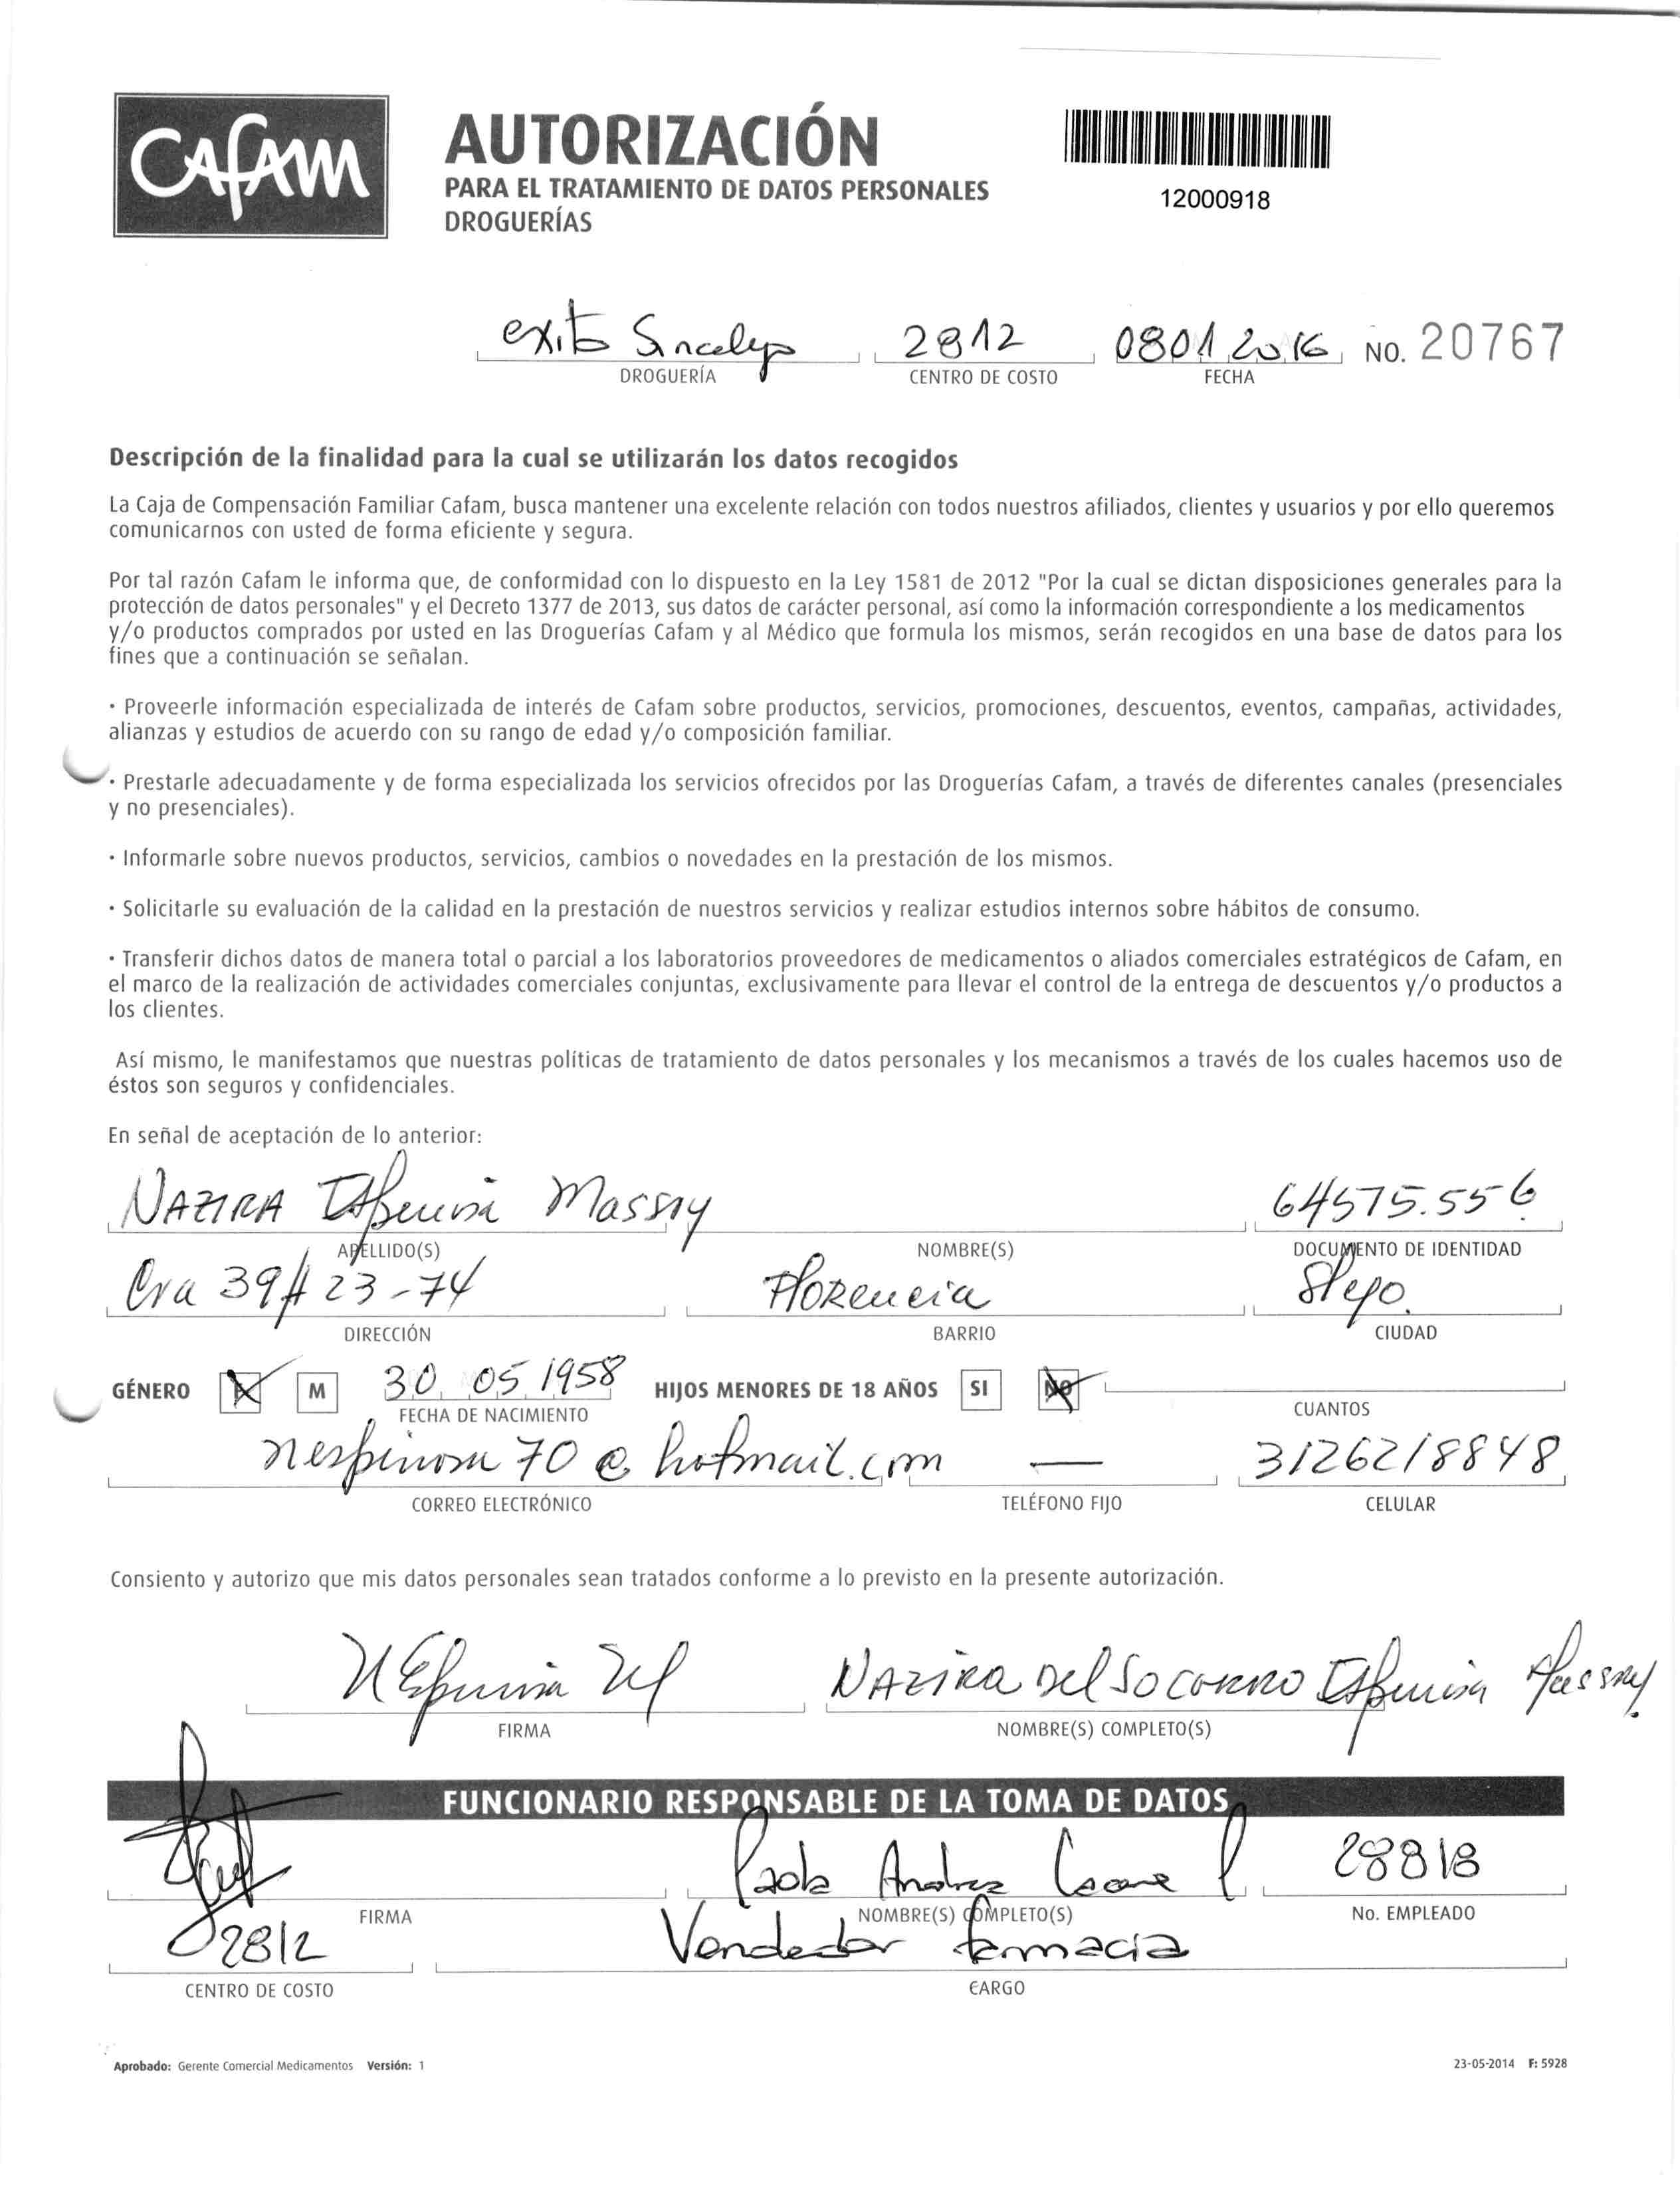 CAFAM
AUTORIZACIÓN
PARA EL TRATAMIENTO DE DATOS PERSONALES
DROGUERÍAS
12000918
exito Sincelejo 2812 0801 2016 NO. 20767
DROGUERÍA CENTRO DE COSTO FECHA
Descripción de la finalidad para la cual se utilizarán los datos recogidos
La Caja de Compensación Familiar Cafam, busca mantener una excelente relación con todos nuestros afiliados, clientes y usuarios y por ello queremos
comunicarnos con usted de forma eficiente y segura.
Por tal razón Cafam le informa que, de conformidad con lo dispuesto en la Ley 1581 de 2012 "Por la cual se dictan disposiciones generales para la
protección de datos personales" y el Decreto 1377 de 2013, sus datos de carácter personal, así como la información correspondiente a los medicamentos
y/o productos comprados por usted en las Droguerías Cafam y al Médico que formula los mismos, serán recogidos en una base de datos para los
fines que a continuación se señalan.
· Proveerle información especializada de interés de Cafam sobre productos, servicios, promociones, descuentos, eventos, campañas, actividades,
alianzas y estudios de acuerdo con su rango de edad y/o composición familiar.
· Prestarle adecuadamente y de forma especializada los servicios ofrecidos por las Droguerías Cafam, a través de diferentes canales (presenciales
y no presenciales).
· Informarle sobre nuevos productos, servicios, cambios o novedades en la prestación de los mismos.
· Solicitarle su evaluación de la calidad en la prestación de nuestros servicios y realizar estudios internos sobre hábitos de consumo.
· Transferir dichos datos de manera total o parcial a los laboratorios proveedores de medicamentos o aliados comerciales estratégicos de Cafam, en
el marco de la realización de actividades comerciales conjuntas, exclusivamente para llevar el control de la entrega de descuentos y/o productos a
los clientes.
Así mismo, le manifestamos que nuestras políticas de tratamiento de datos personales y los mecanismos a través de los cuales hacemos uso de
éstos son seguros y confidenciales.
En señal de aceptación de lo anterior:
NAZIRA Espinosa Massry 64575.556
APELLIDO(S) NOMBRE(S) DOCUMENTO DE IDENTIDAD
Cra 39# 23-74 Florencia Slejo.
DIRECCIÓN BARRIO CIUDAD
GÉNERO F M 30 05 1958 HIJOS MENORES DE 18 AÑOS SI NO
FECHA DE NACIMIENTO CUANTOS
nespinosa70@hotmail.com — 3126218848
CORREO ELECTRÓNICO TELÉFONO FIJO CELULAR
Consiento y autorizo que mis datos personales sean tratados conforme a lo previsto en la presente autorización.
NEspinosa M NAZIRA Del Socorro Espinosa Massry
FIRMA NOMBRE(S) COMPLETO(S)
FUNCIONARIO RESPONSABLE DE LA TOMA DE DATOS
Paola Andrea 28818
FIRMA NOMBRE(S) COMPLETO(S) No. EMPLEADO
2812 Vendedor farmacia
CENTRO DE COSTO CARGO
Aprobado: Gerente Comercial Medicamentos Versión: 1 23-05-2014 F: 5928